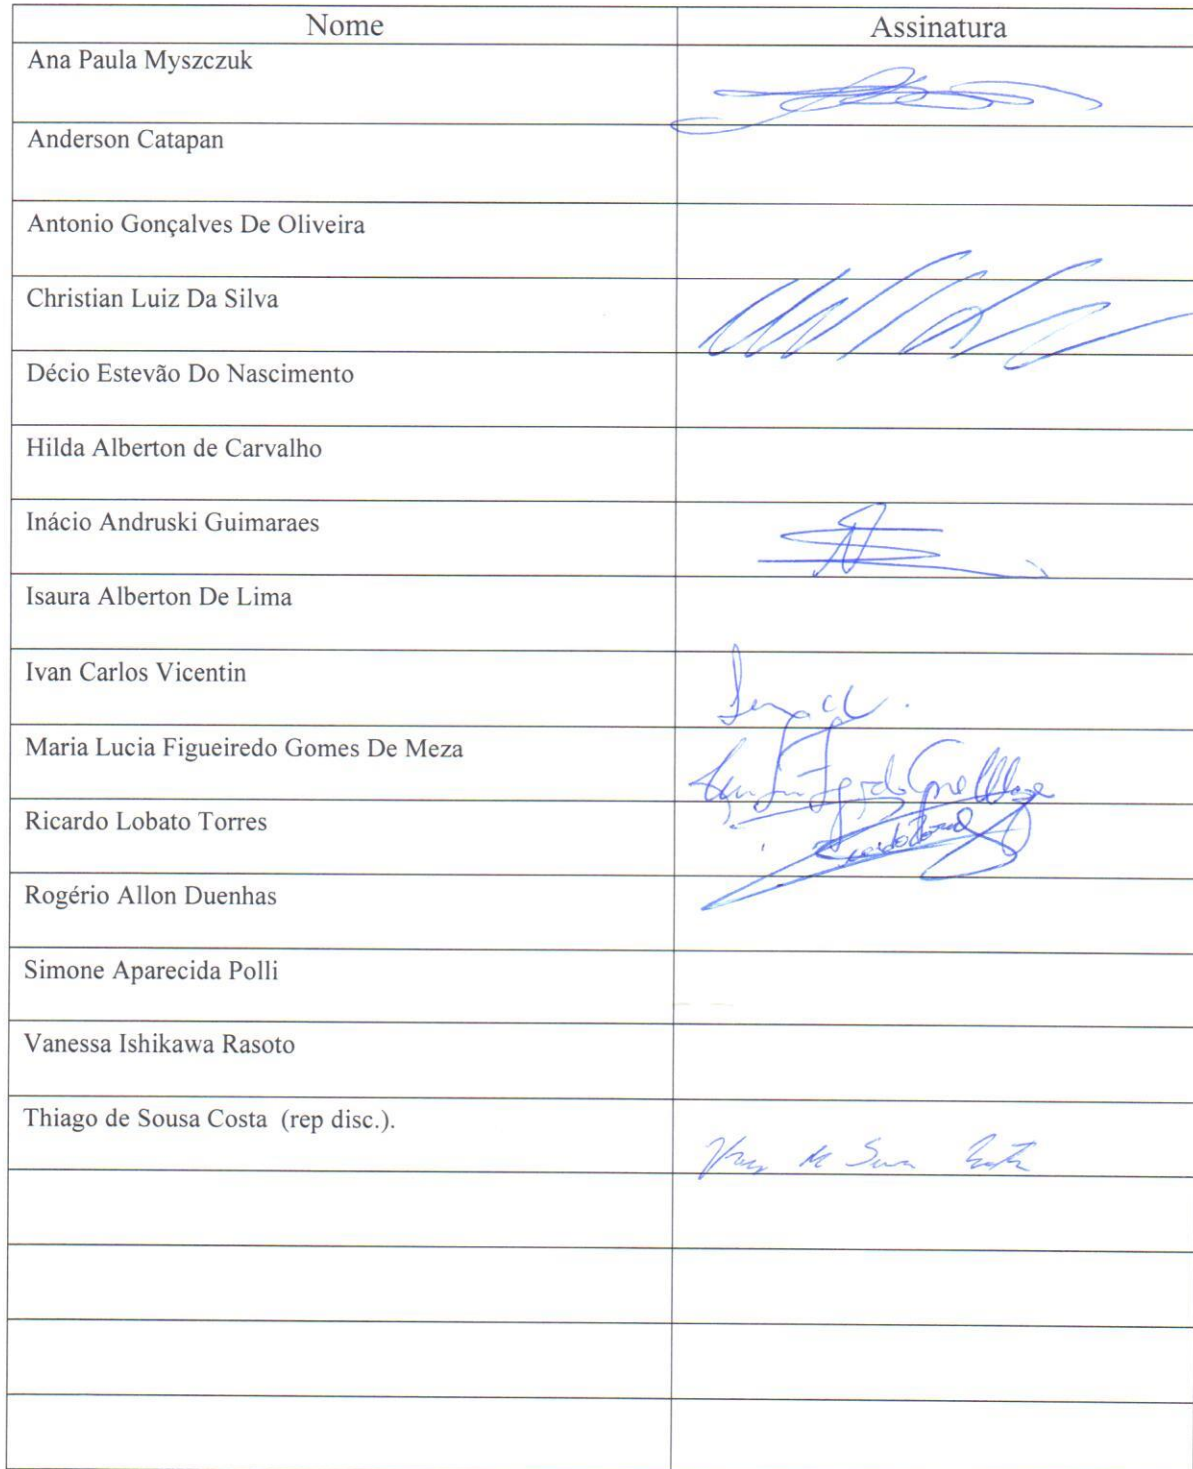 Nome Assinatura
Ana Paula Myszczuk
Anderson Catapan
Antonio Gonçalves De Oliveira
Christian Luiz Da Silva
Décio Estevão Do Nascimento
Hilda Alberton de Carvalho
Inácio Andruski Guimaraes
Isaura Alberton De Lima
Ivan Carlos Vicentin
Maria Lucia Figueiredo Gomes De Meza
Ricardo Lobato Torres
Rogério Allon Duenhas
Simone Aparecida Polli
Vanessa Ishikawa Rasoto
Thiago de Sousa Costa (rep disc.).